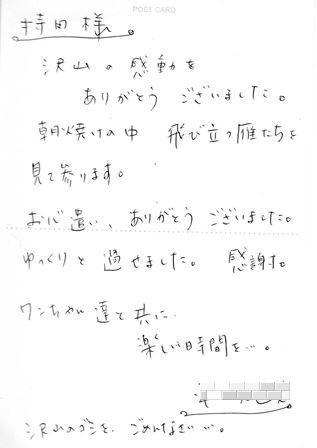 POST CARD
持田 様
沢山 の 感動 を
ありがとう ございました。
朝焼けの中 飛び立つ雁たちを
見て参ります。
お心遣い、ありがとう ございました。
ゆっくりと 過せました。 感謝。
ワンちゃん 達と 共に
楽しい時間を…。
沢山のゴミを、ごめんなさい…。